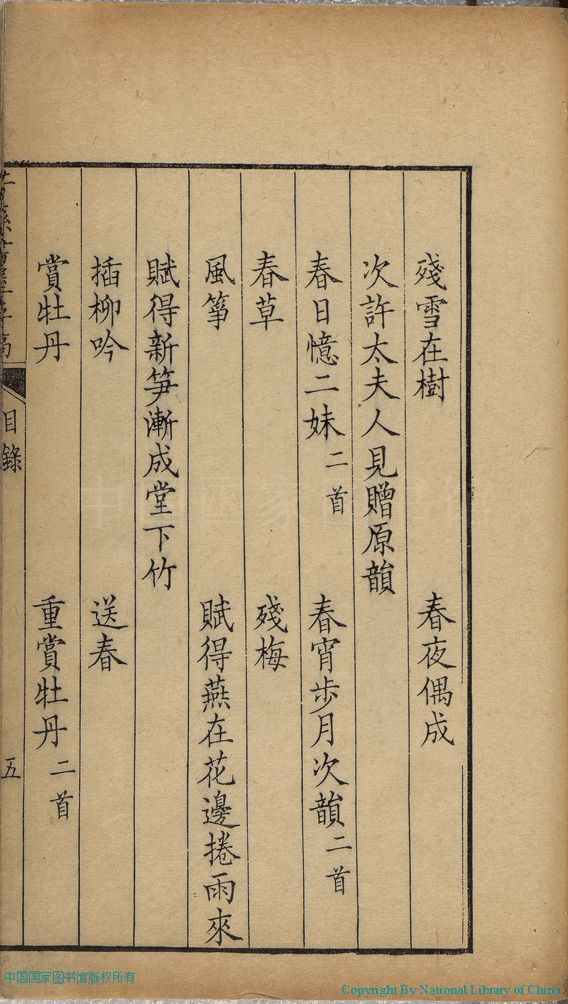 殘雪在樹 春夜偶成
次許太夫人見贈原韻
春日憶二妹二首 春宵步月次韻二首
春草 殘梅
風箏 賦得燕在花邊捲雨來
賦得新笋漸成堂下竹
插柳吟 送春
賞牡丹 重賞牡丹二首
目錄 五
中国国家图书馆版权所有
Copyright By National Library of China